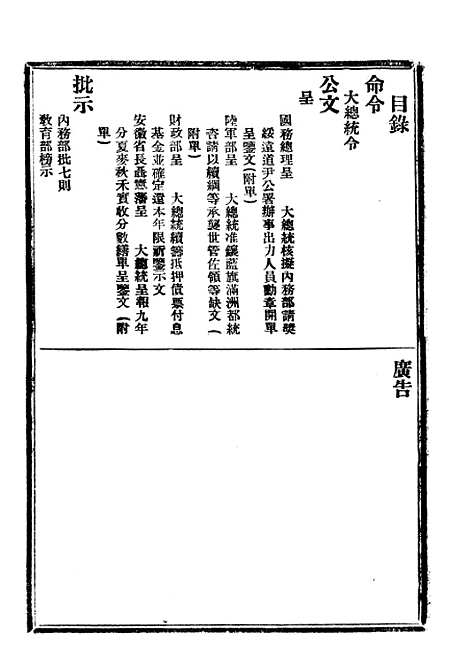 目錄
命令
大總統令
公文
呈
國務總理呈　大總統核擬內務部請獎
綏遠道尹公署辦事出力人員勳章開單
呈鑒文(附單)
陸軍部呈　大總統准鑲藍旗滿洲都統
咨請以續綱等承襲世管佐領等缺文(
附單)
財政部呈　大總統續籌抵押債票付息
基金並確定還本年限祈鑒示文
安徽省長聶憲藩呈　大總統呈報九年
分夏麥秋禾實收分數繕單呈鑒文(附
單)
批示
內務部批七則
敎育部榜示
廣告